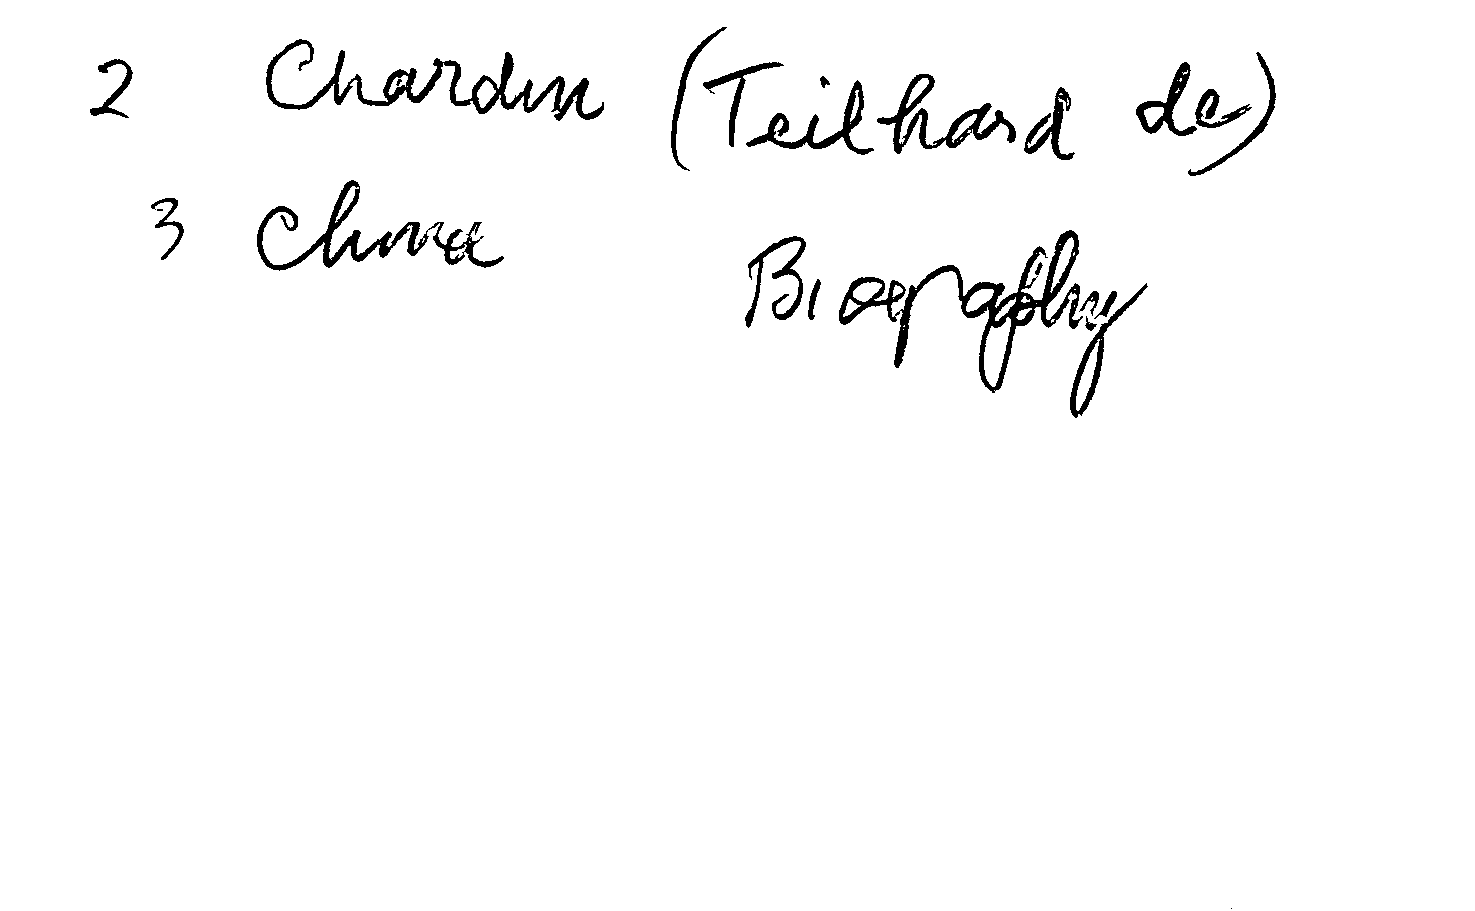 2 Chardin (Teilhard de)
3 China
Biography